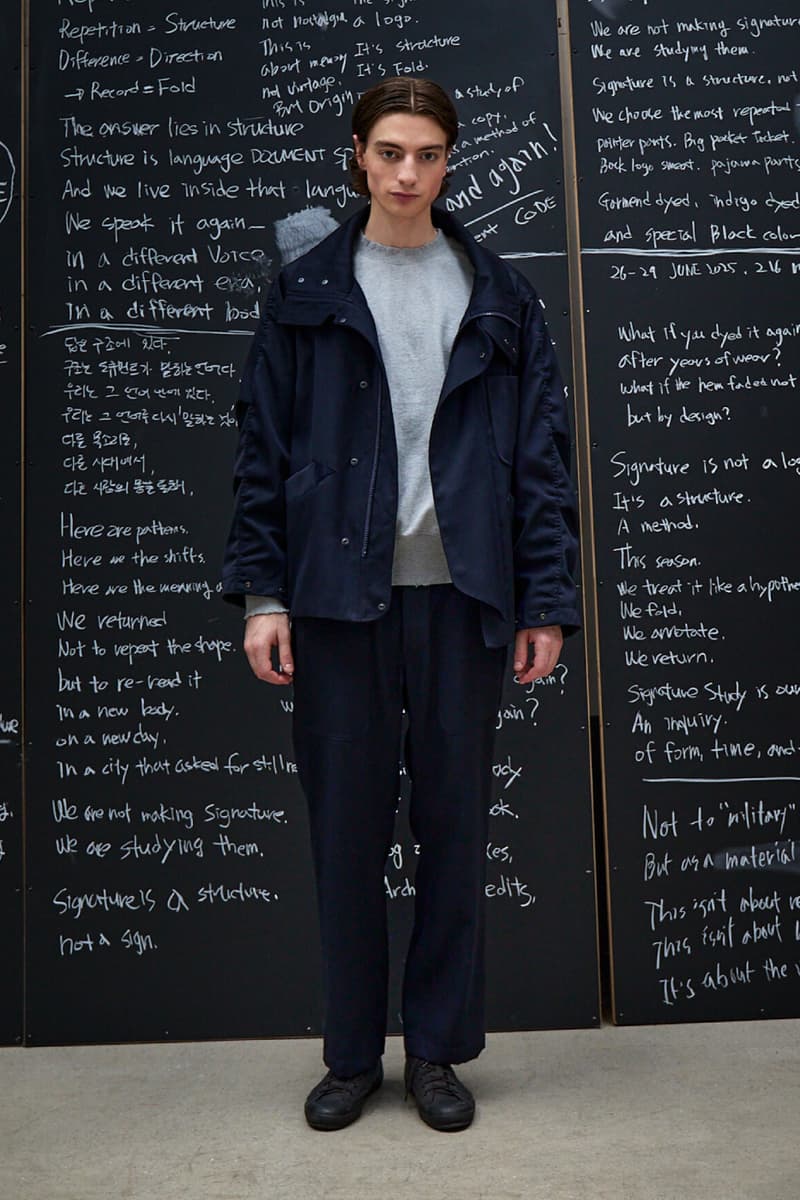 Repetition = Structure
Difference = Direction
→ Record = Fold
The answer lies in structure
Structure is language DOCUMENT
And we live inside that
We speak it again—
in a different Voice
in a different era,
In a different bod
답은 구조에 있다.
우리는 그 언어 안에 있다.
다른 목소리로,
다른 시대에서,
다른 사람의 몸을 통해,
Here are patterns.
Here are the shifts.
Here are the meaning
We returned
Not to repeat the shape.
but to re-read it
in a new body.
on a new day.
In a city that asked for
We are not making Signature.
We are studying them.
Signature is a structure.
not a sign.
This is
not nostalgia
a logo.
This is
about memory
It's structure
not vintage.
It's Fold.
But Origin
a study of
a copy,
a method of
and again!
CODE
again?
We are not making signature
We are studying them.
Signature is a structure, not
We choose the most repeated
painter pants. Big pocket Jacket.
Back logo sweat. pajama pants
Garmend dyed, indigo dyed
and special Black colou
26-29 JUNE 2025. 216
What if you dyed it again
after years of wear?
what if the hem faded not
but by design?
Signature is not a log
It's a structure.
A method.
This season.
we treat it like a hypothe
We fold.
We annotate.
We return.
Signature Study is ou
An inquiry.
of form, time, and
Not to "military"
But as a material
This isn't about
This isn't about
It's about the